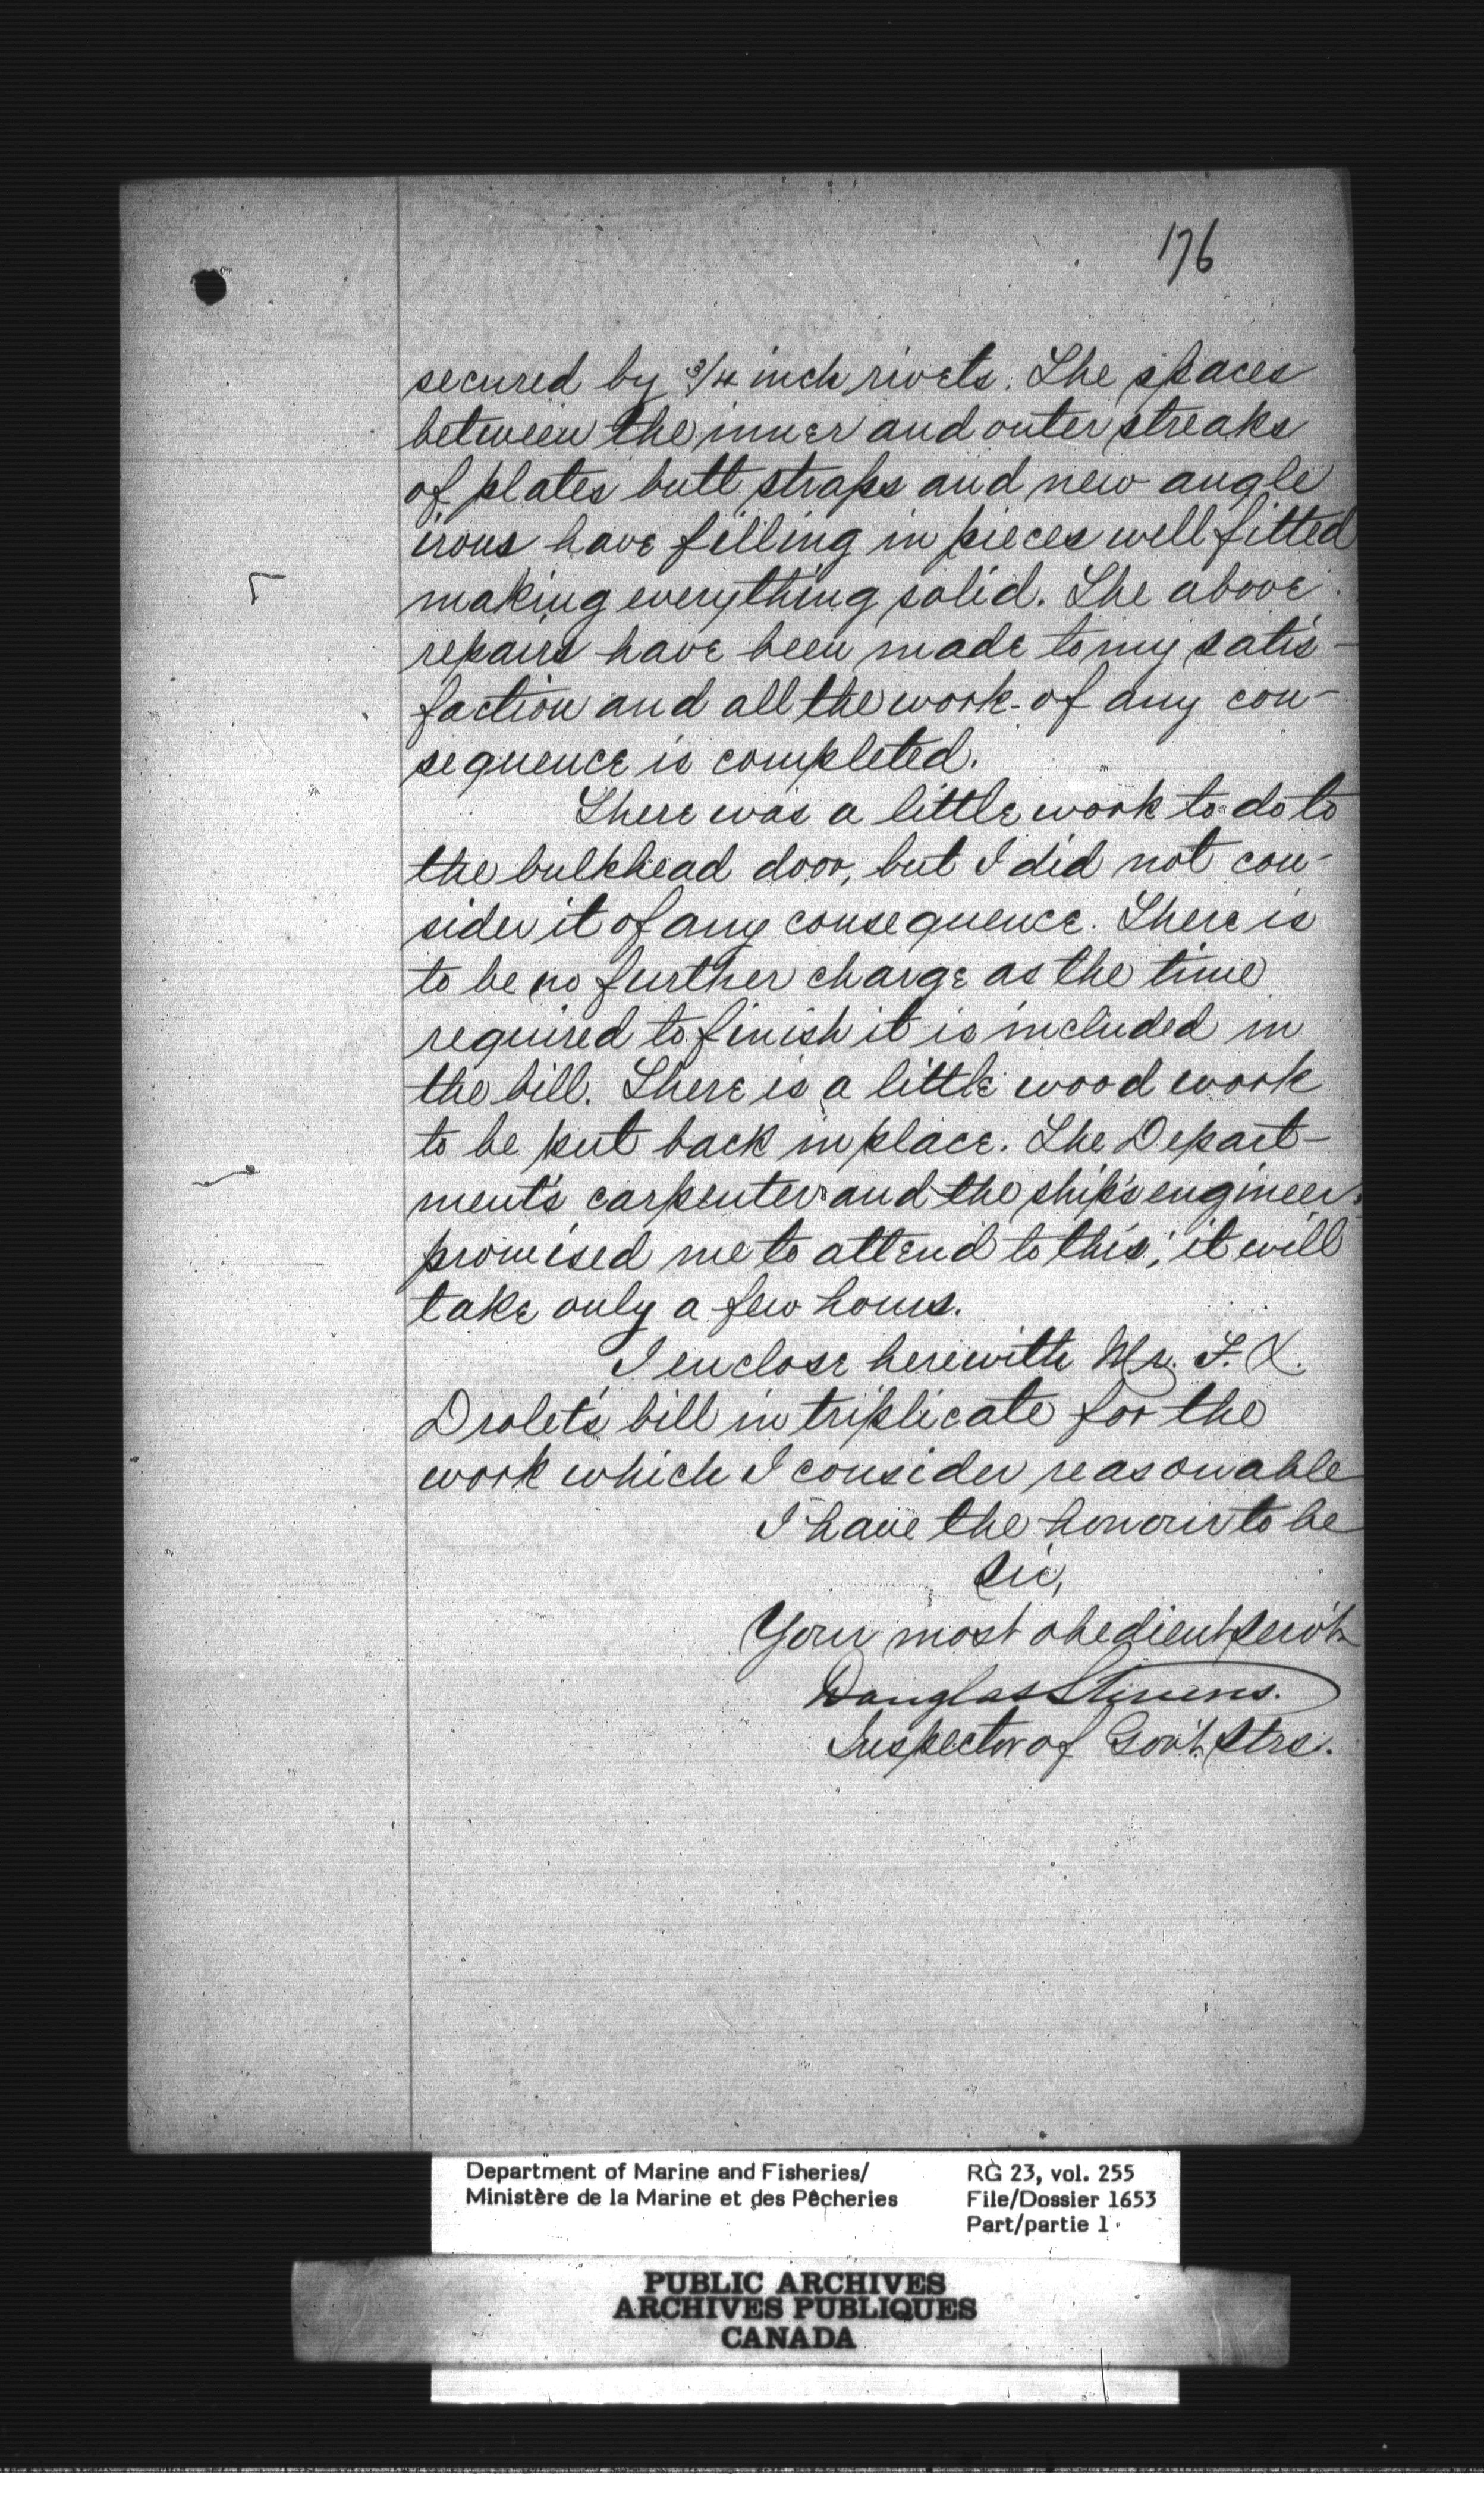 176
secured by 3/4 inch rivets. The spaces
between the inner and outer streaks
of plates butt straps and new angle
irons have filling in pieces well fitted
making everything solid. The above
repairs have been made to my satis-
faction and all the work of any con-
sequence is completed.
There was a little work to do to
the bulkhead door, but I did not con-
sider it of any consequence. There is
to be no further charge as the time
required to finish it is included in
the bill. There is a little wood work
to be put back in place. The Depart-
ment's carpenter and the ship's engineer
promised me to attend to this; it will
take only a few hours.
I enclose herewith Mr. F. X.
Drolet's bill in triplicate for the
work which I consider reasonable
I have the honour to be
Sir,
Your most obedient serv't
Douglas Stevens.
Inspector of Gov't Strs.
Department of Marine and Fisheries/
Ministère de la Marine et des Pêcheries
RG 23, vol. 255
File/Dossier 1653
Part/partie 1
PUBLIC ARCHIVES
ARCHIVES PUBLIQUES
CANADA